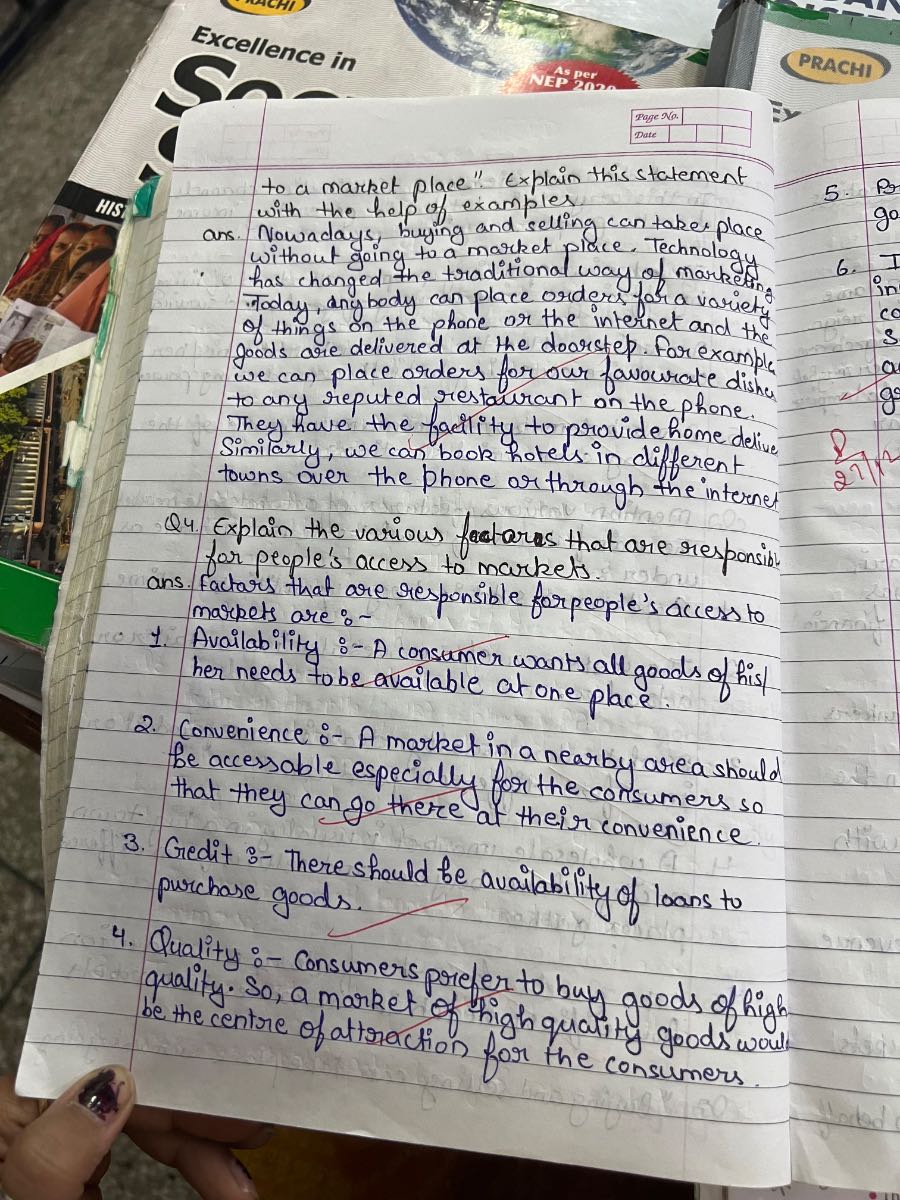 PRACHI
Excellence in
As per
NEP 2020
PRACHI
HIS
Page No.
Date
to a market place". Explain this statement
with the help of examples
ans. Nowadays, buying and selling can take place
without going to a market place. Technology
has changed the traditional way of marketing
Today, anybody can place orders for a variety
of things on the phone or the internet and the
goods are delivered at the doorstep. For example
we can place orders for our favourate dishe
to any reputed restaurant on the phone.
They have the facility to provide home delive
Similarly, we can book hotels in different
towns over the phone or through the internet
Q4. Explain the various factors that are responsib
for people's access to markets.
ans. Factors that are responsible for people's access to
markets are :-
1. Availability :- A consumer wants all goods of his/
her needs to be available at one place.
2. Convenience :- A market in a nearby area should
be accessable especially for the consumers so
that they can go there at their convenience.
3. Credit :- There should be availability of loans to
purchase goods.
4. Quality :- Consumers prefer to buy goods of high
quality. So, a market of high quality goods would
be the centre of attraction for the consumers.
5.
go
6. I
in
co
s
go